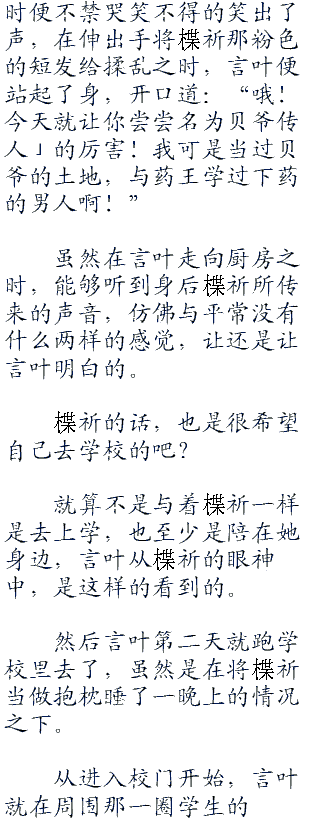 时便不禁哭笑不得的笑出了
声，在伸出手将楪祈那粉色
的短发给揉乱之时，言叶便
站起了身，开口道：“哦！
今天就让你尝尝名为贝爷传
人」的厉害！我可是当过贝
爷的土地，与药王学过下药
的男人啊！”
虽然在言叶走向厨房之
时，能够听到身后楪祈所传
来的声音，仿佛与平常没有
什么两样的感觉，让还是让
言叶明白的。
楪祈的话，也是很希望
自己去学校的吧？
就算不是与着楪祈一样
是去上学，也至少是陪在她
身边，言叶从楪祈的眼神
中，是这样的看到的。
然后言叶第二天就跑学
校里去了，虽然是在将楪祈
当做抱枕睡了一晚上的情况
之下。
从进入校门开始，言叶
就在周围那一圈学生的